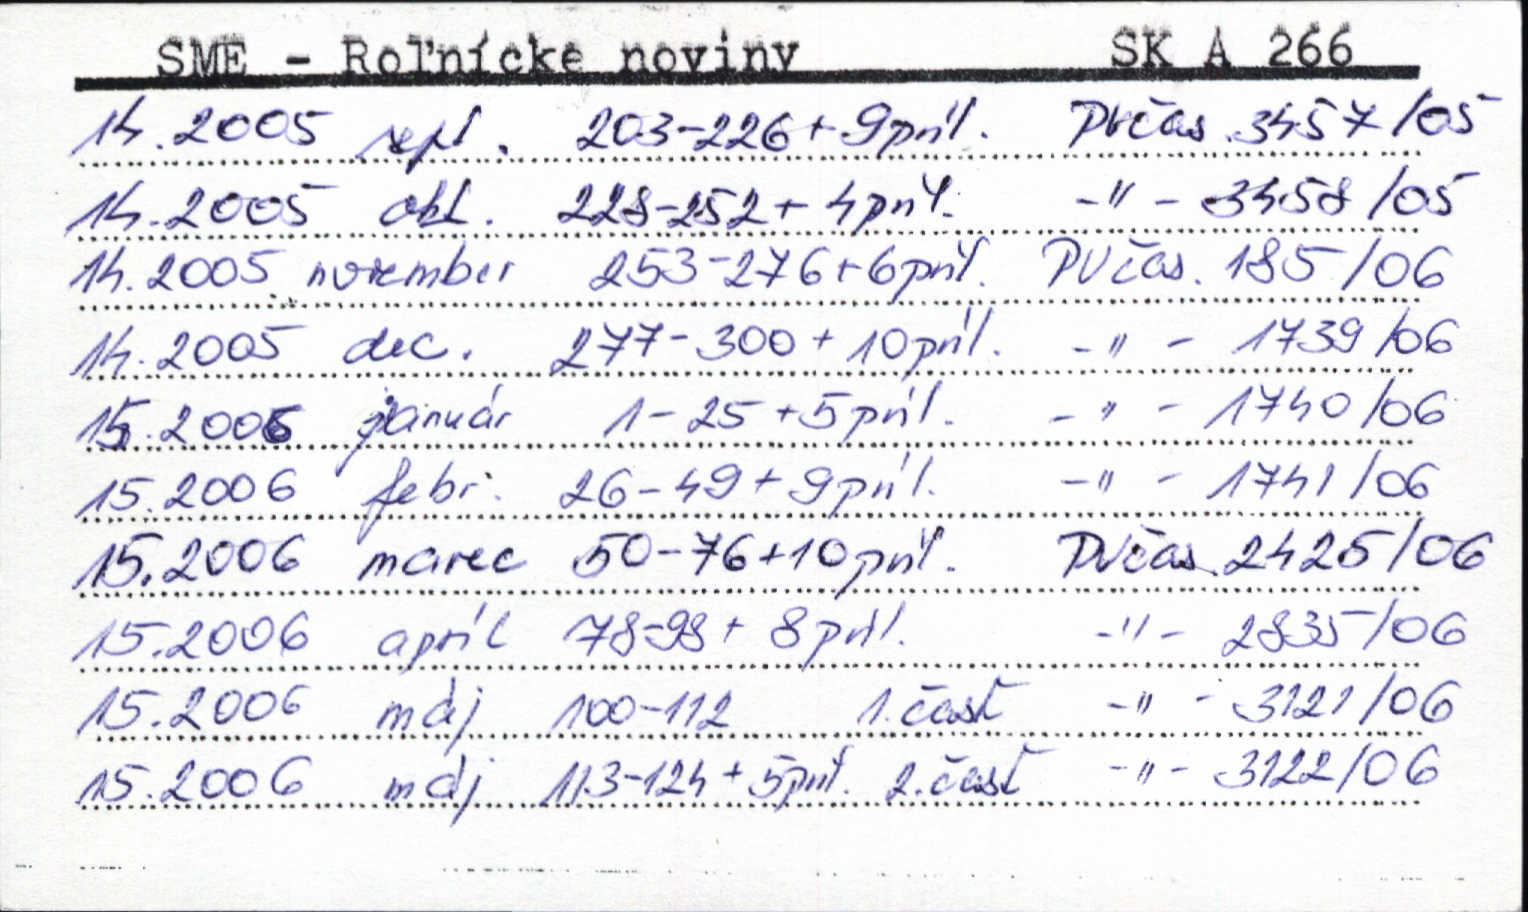 SME - Roľnícke noviny SK A 266
14.2005 sept. 203-226+9príl. PVčas.3457/05
14.2005 okt. 228-252+4príl. -"- 3458/05
14.2005 november 253-276+6príl. PVčas. 185/06
14.2005 dec. 277-300+10príl. -"- 1739/06
15.2006 január 1-25+5príl. -"- 1740/06
15.2006 febr. 26-49+9príl. -"- 1741/06
15.2006 marec 50-76+10príl. PVčas.2425/06
15.2006 apríl 78-98+8príl. -"- 2835/06
15.2006 máj 100-112 1.časť -"- 3121/06
15.2006 máj 113-124+5príl. 2.časť -"- 3122/06